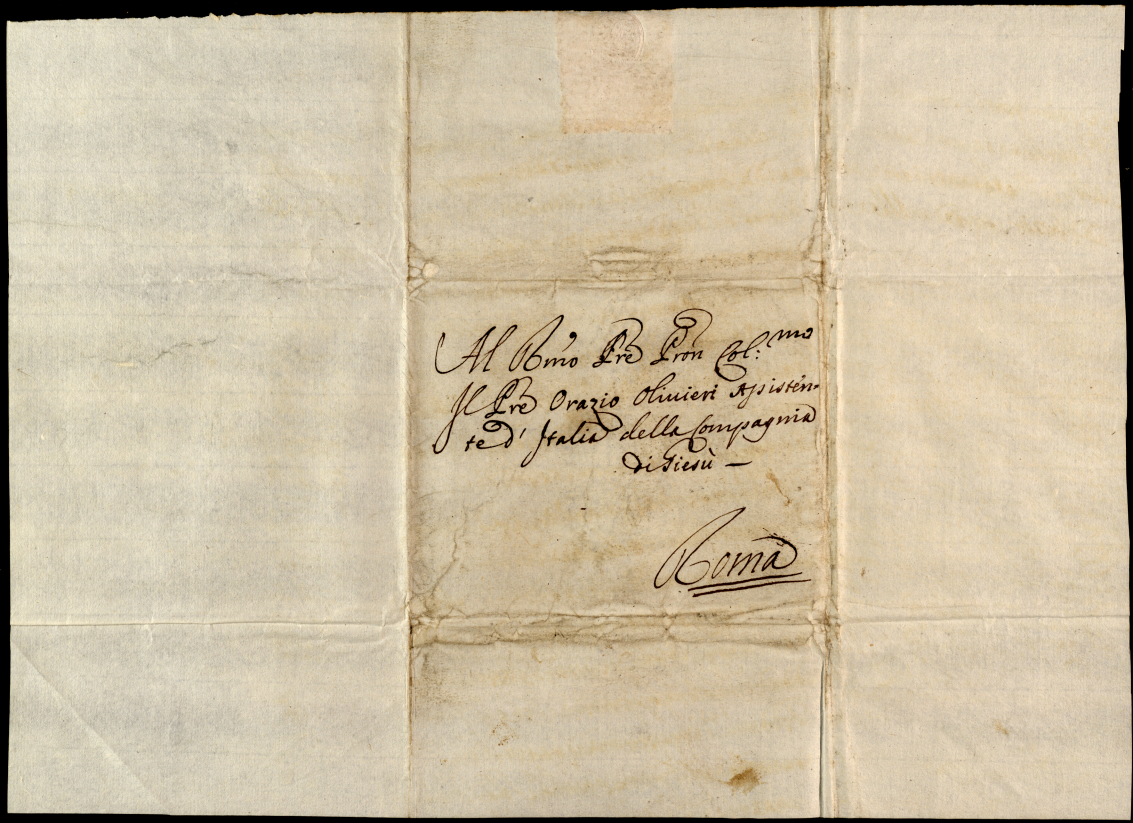 Al Rmo Pre Pron Col:mo
Il Pre Orazio Olivieri Assisten-
te d' Italia della Compagnia
di Giesù —
Roma